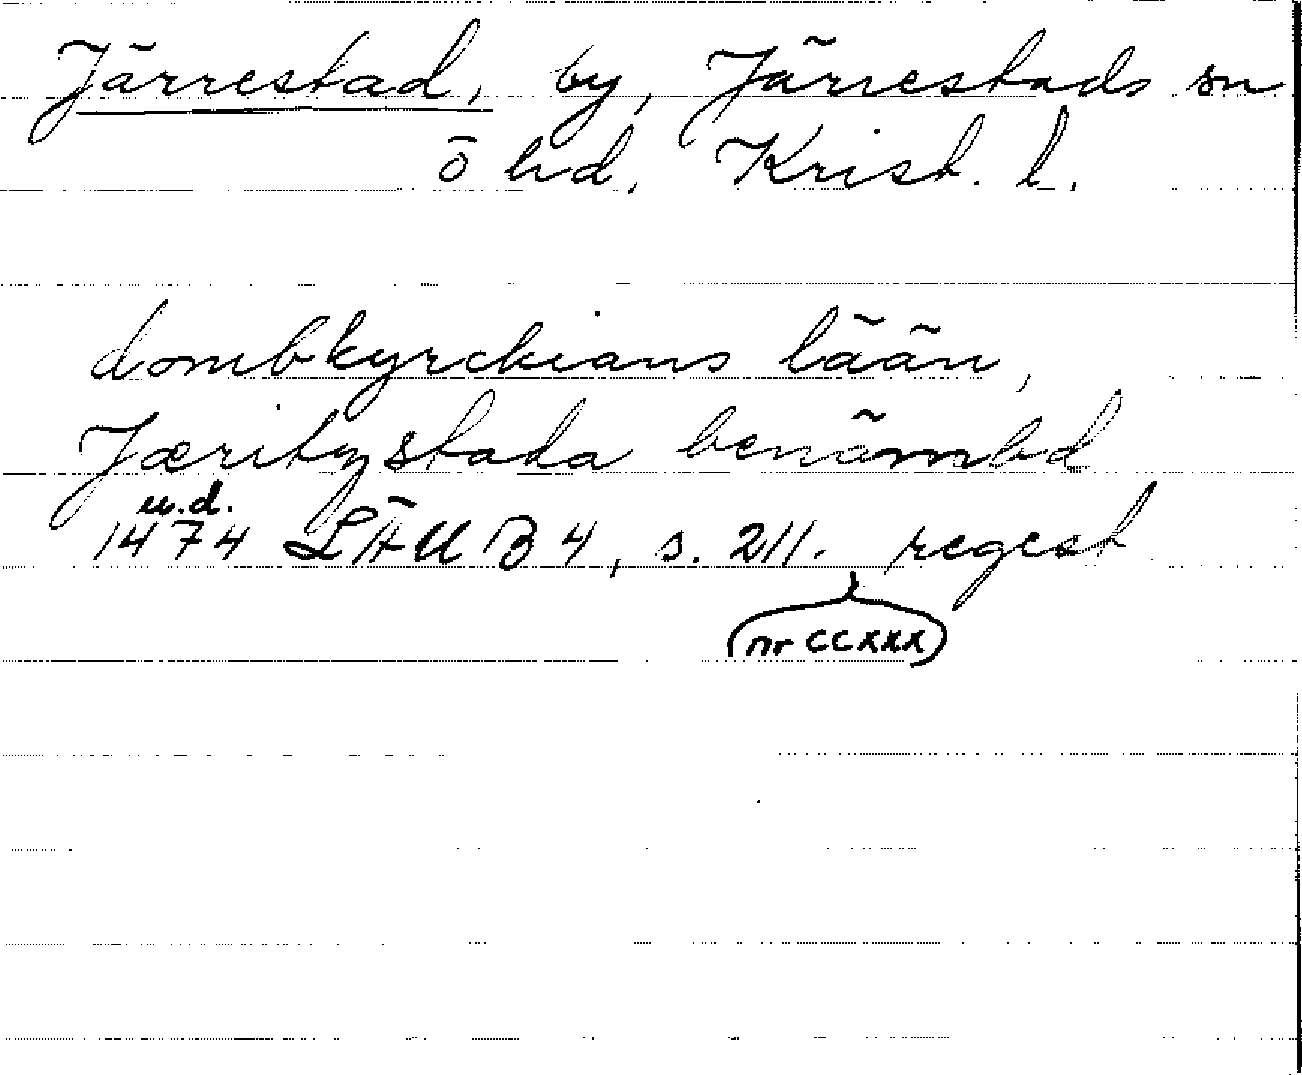 Järrestad, by, Järrestads sn
ö hd, Krist. l.
dombkyrckians lään,
Jæritzstada benämbd
u.d.
1474 LÄUB 4, s. 211. regest
(nr CCXXX)